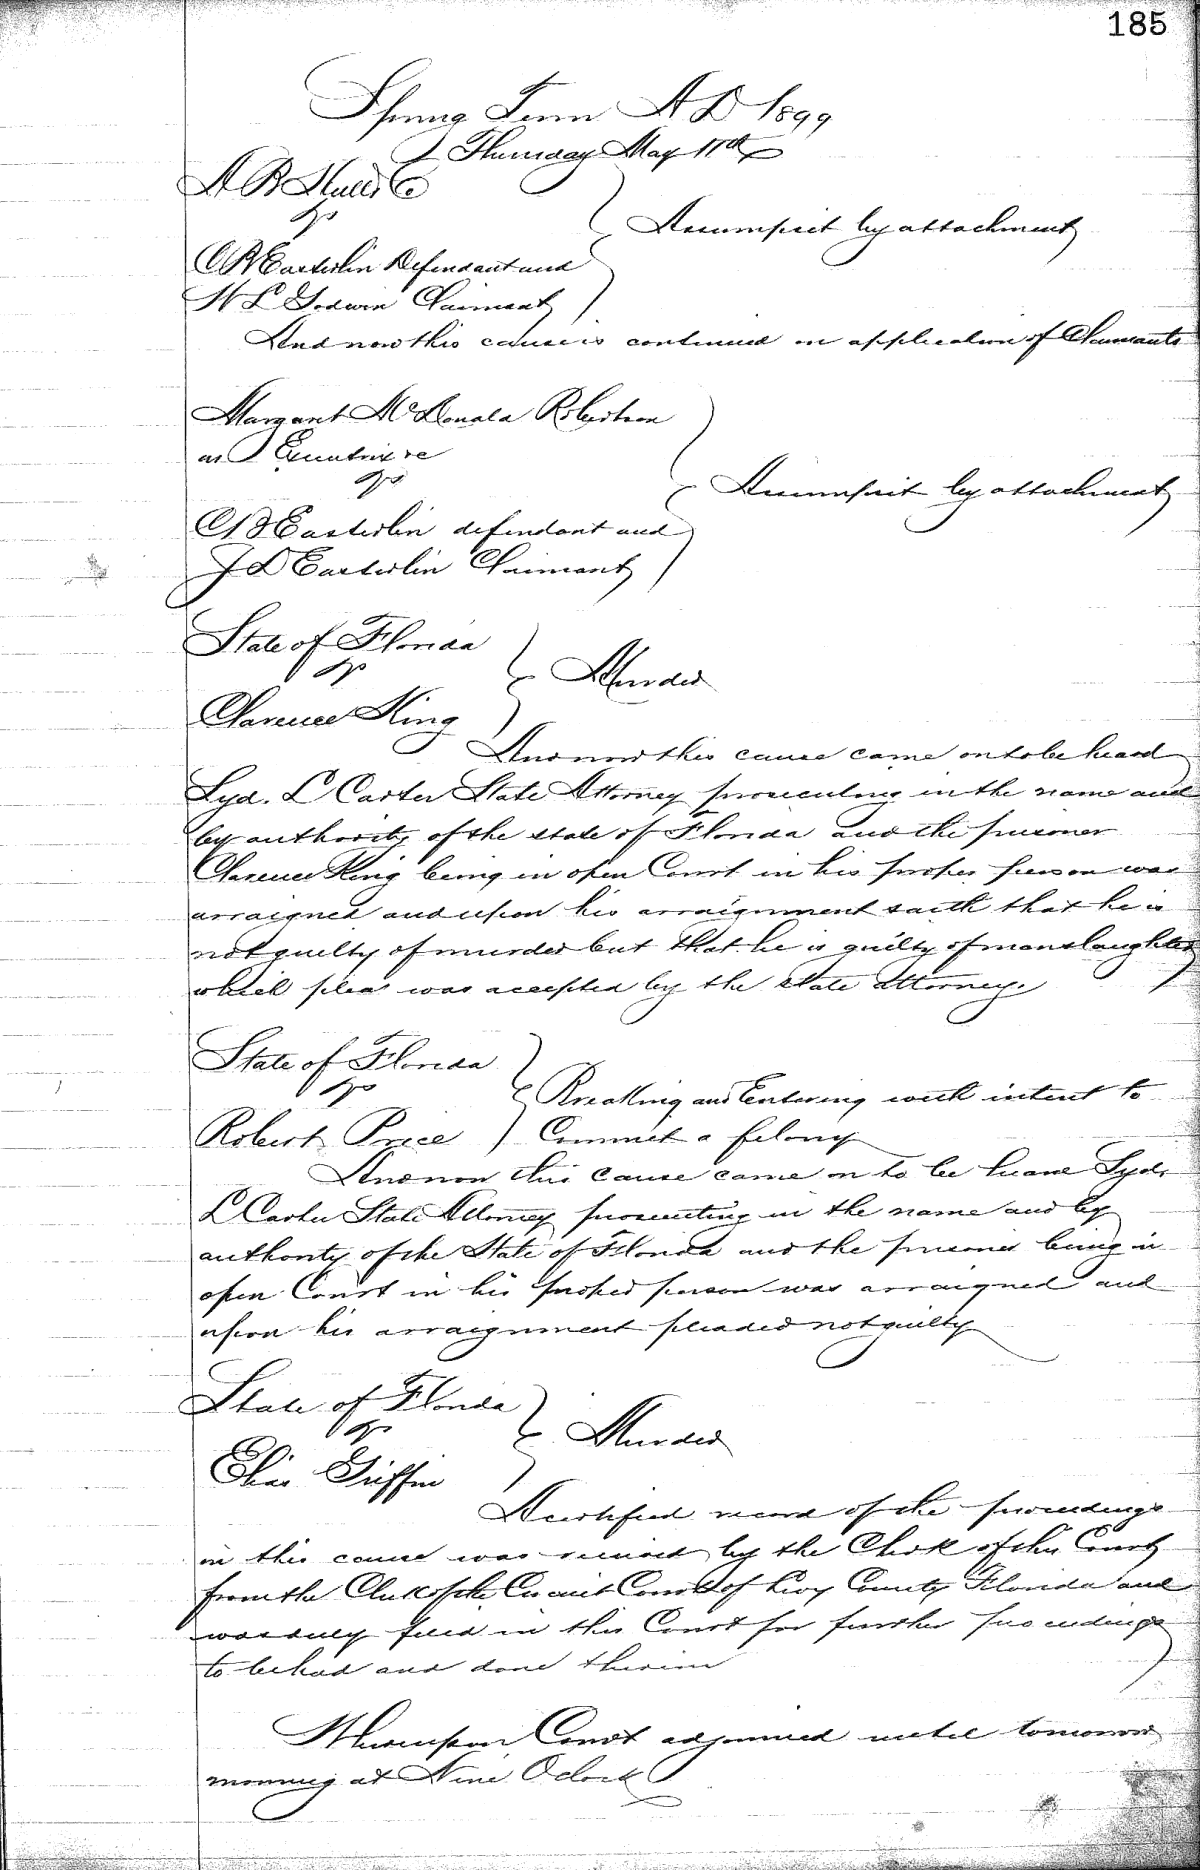 185
Spring Term A D 1899
Thursday May 11th
A B Hull & Co
vs
Assumpsit by attachment
C B Easterlin Defendant and
H L Godwin Claimant
And now this cause is continued on application of Claimants
Margaret McDonald Robertson
as Executrix &c
vs
Assumpsit by attachment
C B Easterlin defendant and
J D Easterlin Claimant
State of Florida
vs
Murder
Clarence King
And now this cause came on to be heard
Syd. L Carter State Attorney prosecuting in the name and
by authority of the state of Florida and the prisoner
Clarence King being in open Court in his proper person was
arraigned and upon his arraignment saith that he is
not guilty of murder but that he is guilty of manslaughter
which plea was accepted by the state attorney.
State of Florida
vs
Breaking and Entering with intent to
Robert Price Commit a felony
And now this cause came on to be heard Syd.
L Carter State Attorney prosecuting in the name and by
authority of the State of Florida and the prisoner being in
open Court in his proper person was arraigned and
upon his arraignment pleaded not guilty
State of Florida
vs
Murder
Elias Griffin
A certified record of the proceedings
in this cause was received by the Clerk of this Court
from the Clerk of the Circuit Court of Levy County Florida and
was duly filed in this Court for further proceedings
to be had and done therein
Whereupon Court adjourned until tomorrow
morning at Nine Oclock